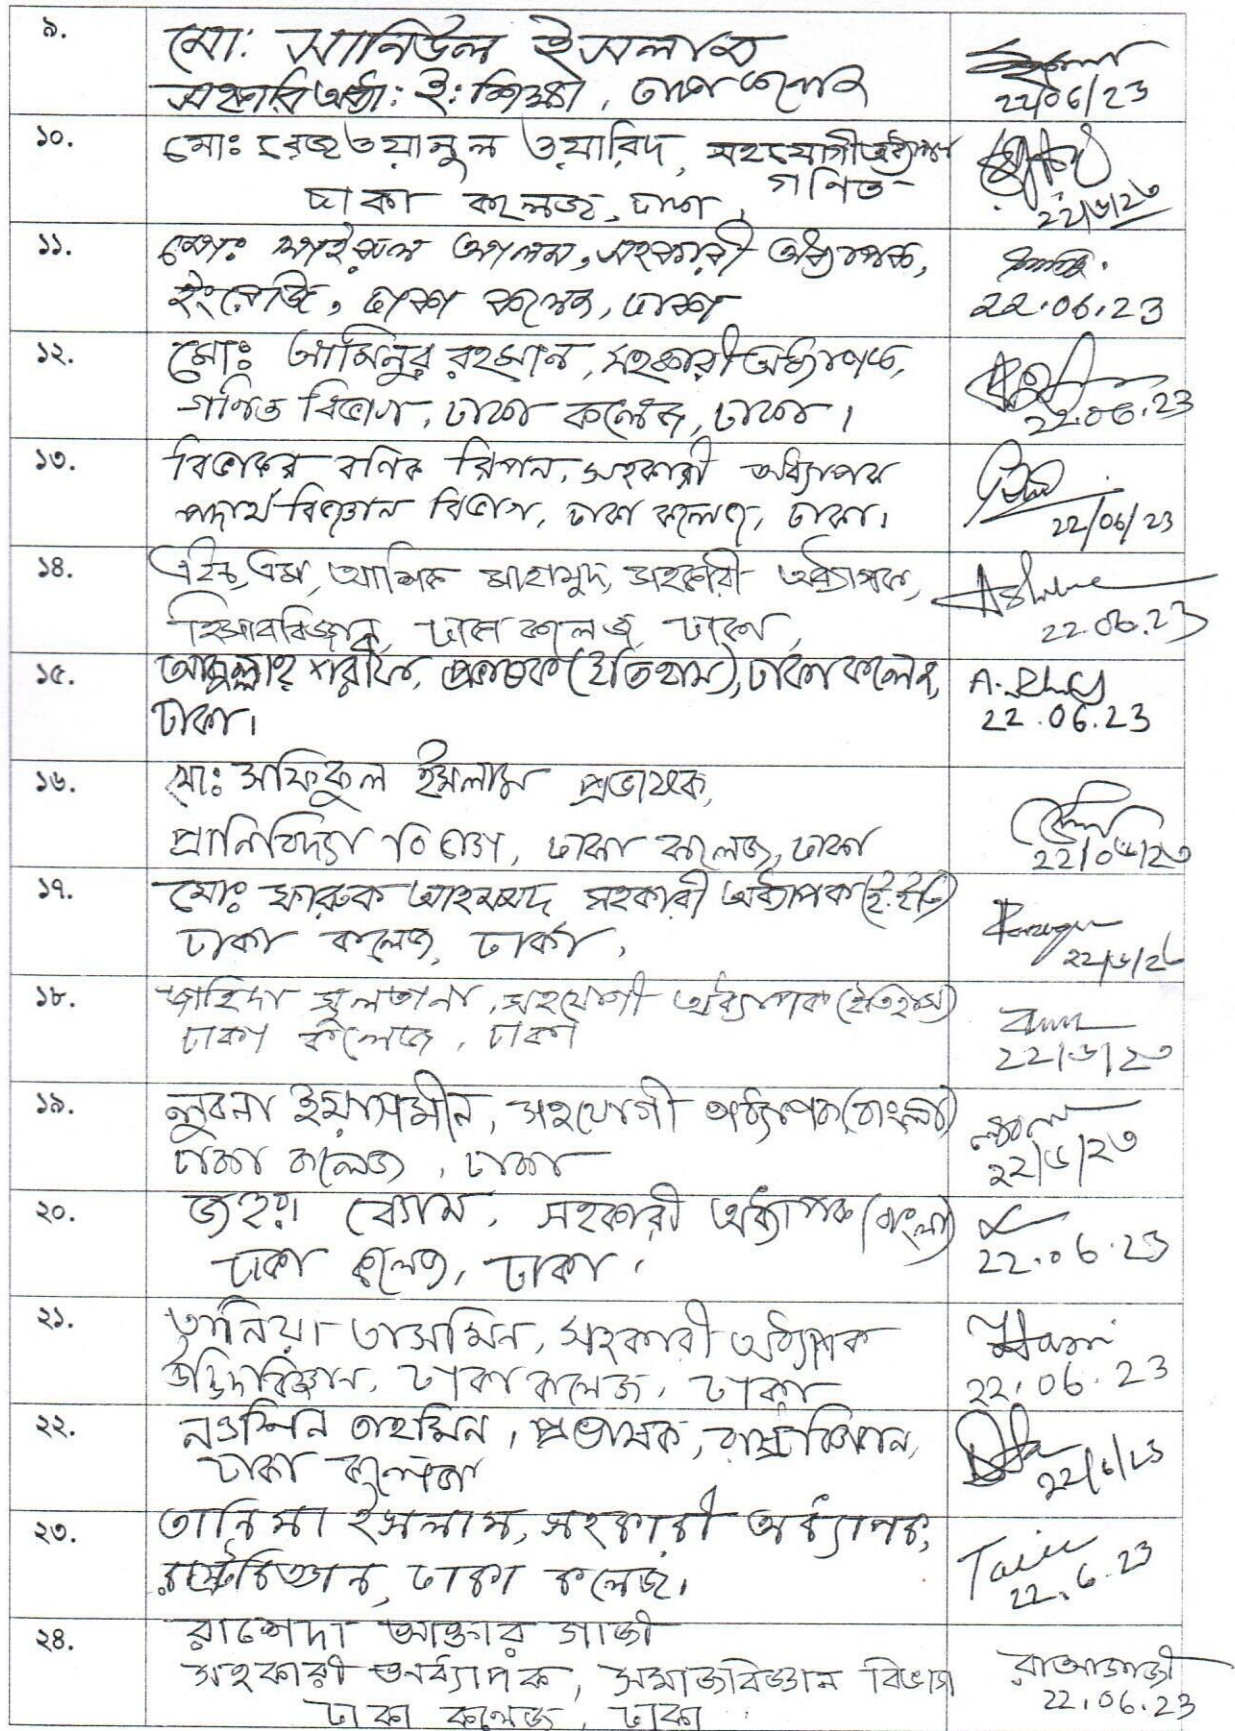 ৯.
মো: সানিউল ইসলাম
সহকারি অধ্যা: ই: শিক্ষা, ঢাকা কলেজ
22/06/23
১০.
মোঃ রেজওয়ানুল ওয়ারিদ, সহযোগী অধ্যাপক
গণিত
ঢাকা কলেজ, ঢাকা,
22/৬/২৩
১১.
মোঃ আলম, সহকারী অধ্যাপক,
ইংরেজি, ঢাকা কলেজ, ঢাকা
22.06.23
১২.
মোঃ আমিনুর রহমান, সহকারী অধ্যাপক,
গণিত বিভাগ, ঢাকা কলেজ, ঢাকা।
22.06.23
১৩.
বিভাকর বণিক রিপন, সহকারী অধ্যাপক
পদার্থবিজ্ঞান বিভাগ, ঢাকা কলেজ, ঢাকা।
22/06/23
১৪.
এইচ, এম, আশিক মাহামুদ, সহকারী অধ্যাপক,
হিসাববিজ্ঞান, ঢাকা কলেজ, ঢাকা,
22.06.23
১৫.
আব্দুল্লাহ শরীফ, প্রভাষক (ইতিহাস), ঢাকা কলেজ,
ঢাকা।
22.06.23
১৬.
মো: সফিকুল ইসলাম প্রভাষক,
প্রানিবিদ্যা বিভাগ, ঢাকা কলেজ, ঢাকা
22/০৬/২৩
১৭.
মোঃ ফারুক আহমমদ, সহকারী অধ্যাপক (ই.ইতি)
ঢাকা কলেজ, ঢাকা,
22/৬/২৩
১৮.
জাহিদা সুলতানা, সহযোগী অধ্যাপক (ইতিহাস)
ঢাকা কলেজ, ঢাকা
22/৬/২৩
১৯.
লুবনা ইয়াসমীন, সহযোগী অধ্যাপক (বাংলা)
ঢাকা কলেজ, ঢাকা
22/৬/২৩
২০.
জহুরা বেগম, সহকারী অধ্যাপক (বাংলা)
ঢাকা কলেজ, ঢাকা,
22.06.23
২১.
তানিয়া তাসমিন, সহকারী অধ্যাপক
উদ্ভিদবিজ্ঞান, ঢাকা কলেজ, ঢাকা
22.06.23
২২.
নওশিন তাহমিন, প্রভাষক, রাষ্ট্রবিজ্ঞান,
ঢাকা কলেজ
22/6/23
২৩.
তানিমা ইসলাম, সহকারী অধ্যাপক,
রাষ্ট্রবিজ্ঞান, ঢাকা কলেজ।
22.6.23
২৪.
রাশেদা আক্তার গাজী
সহকারী অধ্যাপক, সমাজবিজ্ঞান বিভাগ
ঢাকা কলেজ, ঢাকা
22.06.23